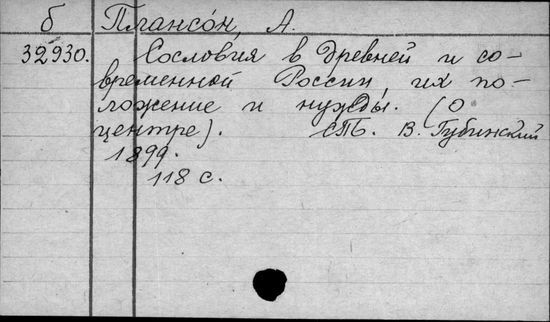 б Плансо́н, А.
32930. Сословия в древней и со-
временной России, их по-
ложение и нужды. (О
центре). СПб. В. Губинский
1899.
118 с.